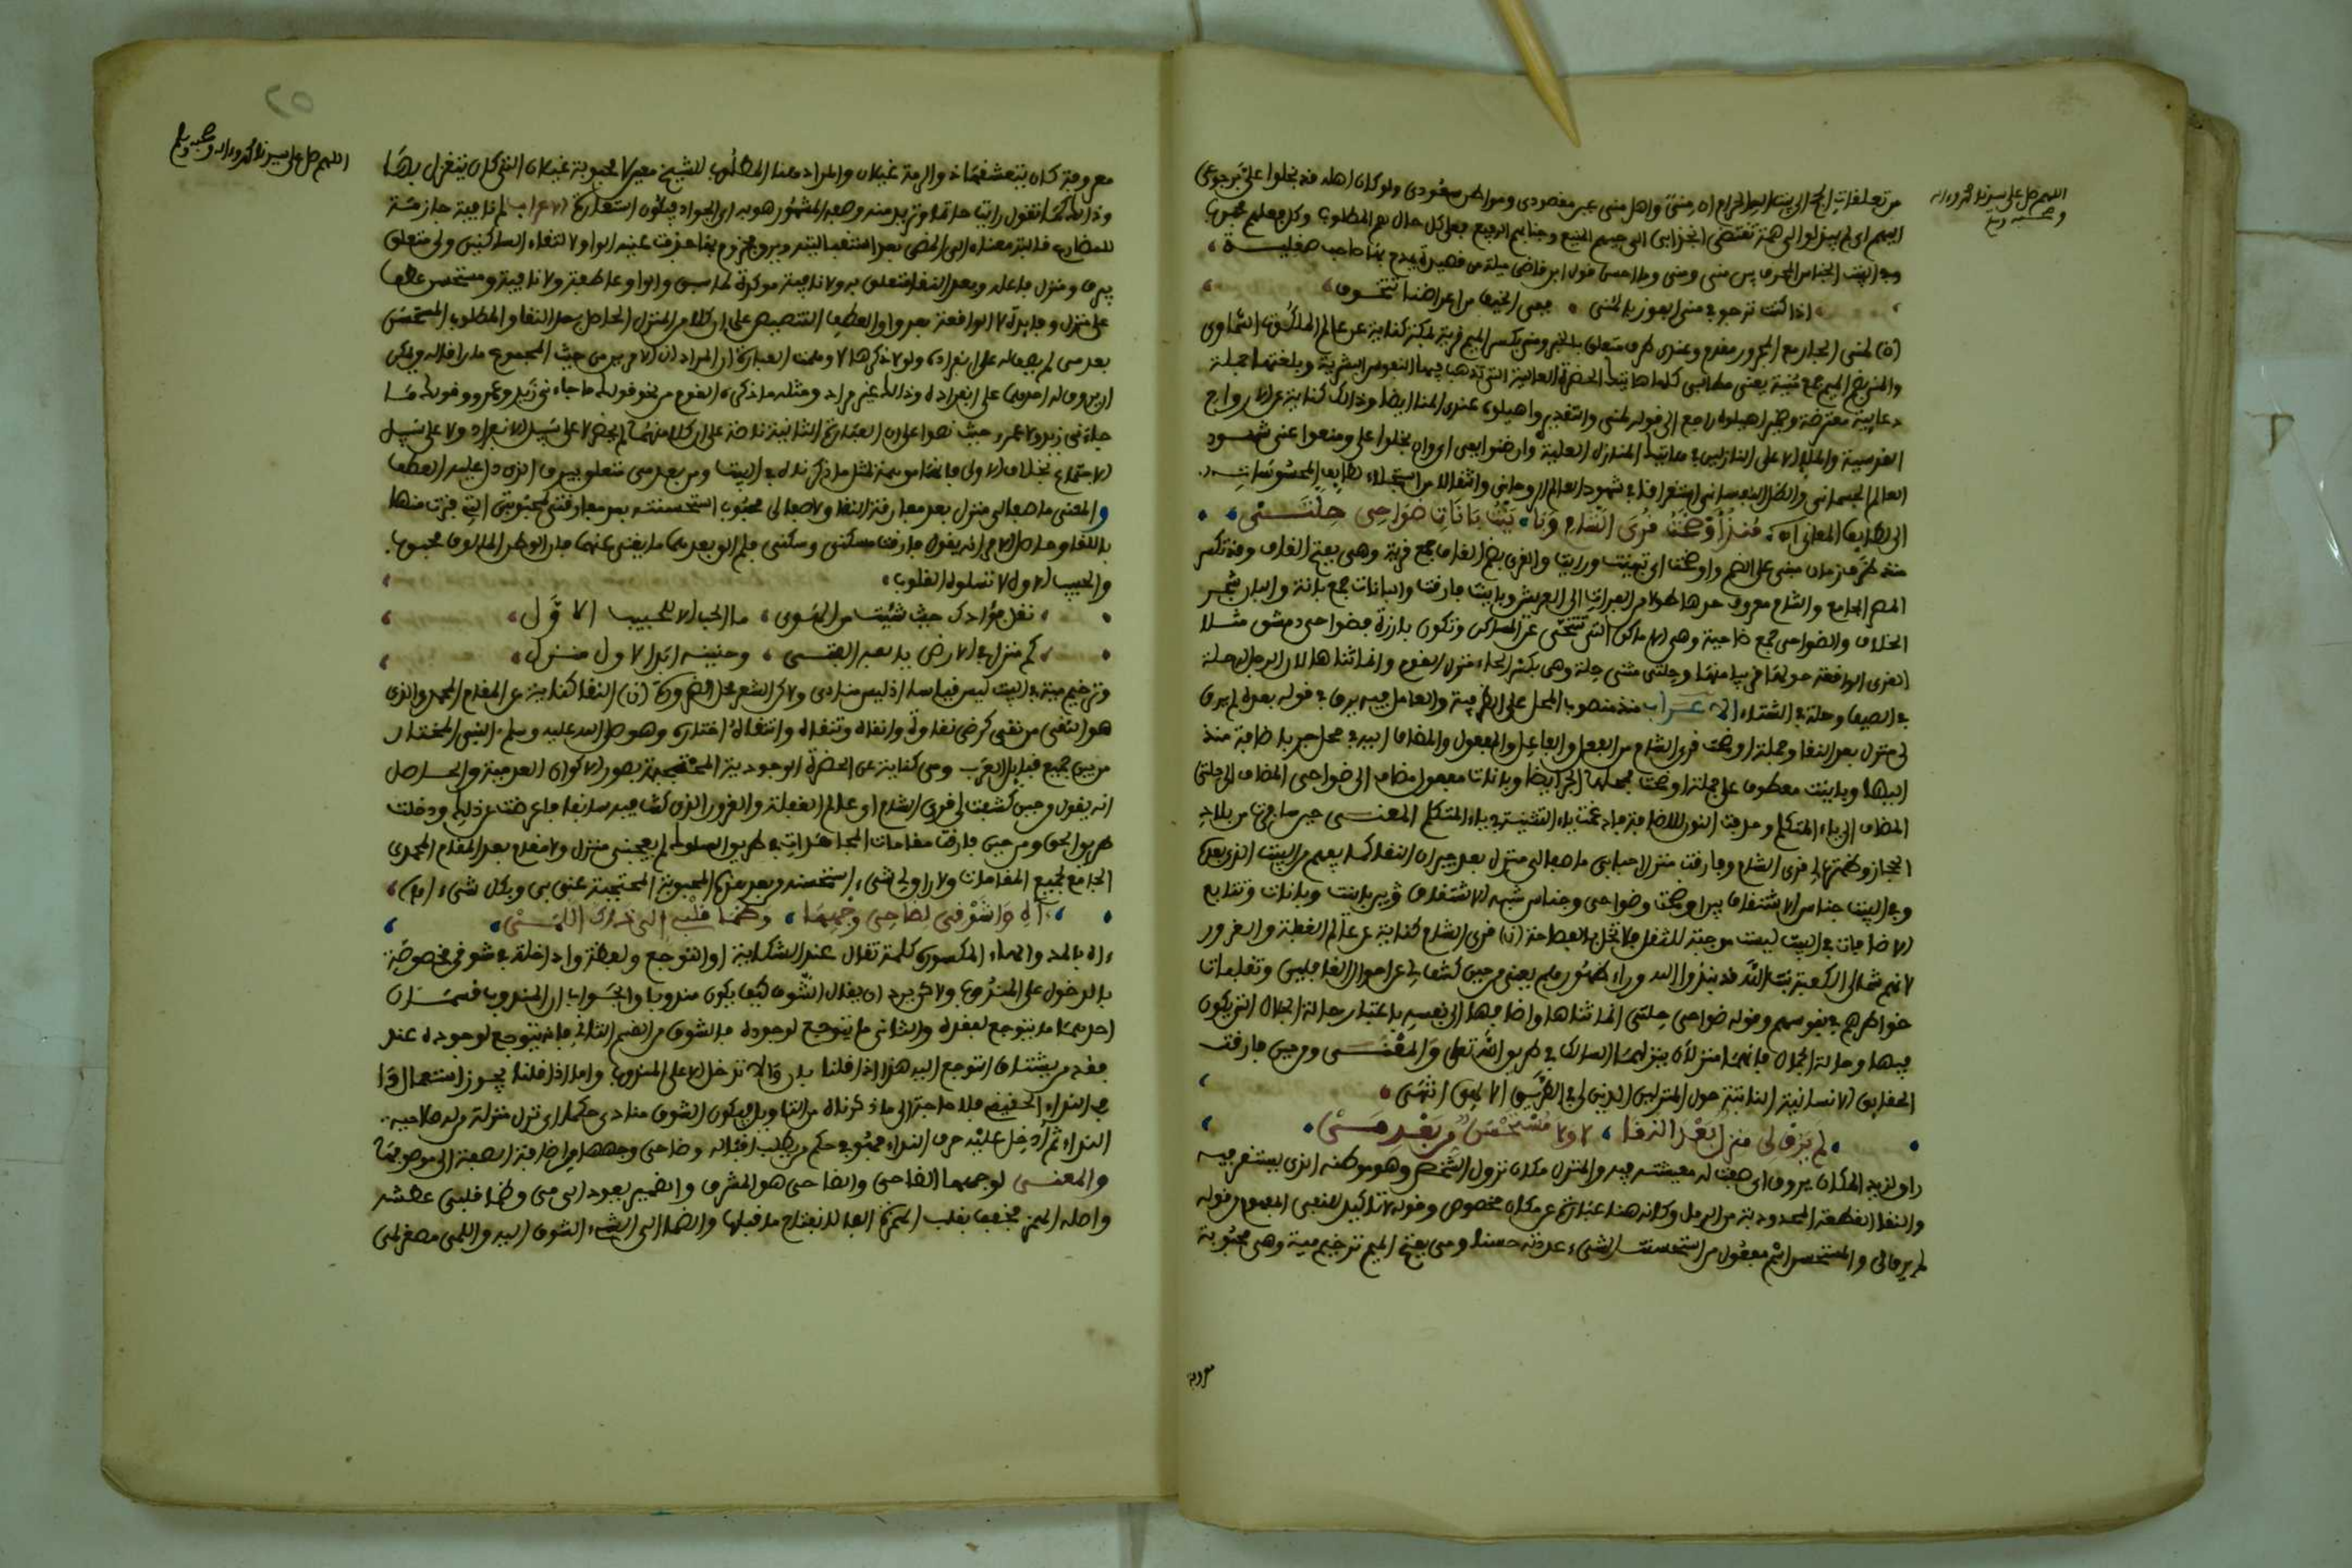 اللهم صل على سيدنا محمد وءاله
وصحبه وسلم
من تعلقات الحج الى بيت الله الحرام اه منى واهل منى عبر مقصودى ومواطن سعودى ولو كان اهله قد بخلوا على برجوعى
اليهم اى لم يميلوا لى همة تقتضى انجذابى الى حيهم المنيع وجنابهم الرفيع فعلى كل حال هم المطلوب وكل فعلهم محبوب
وفى البيت الجناس المحرف بين منى ومنى وما احسن قول ابن قاضى ميلة من قصيدة يمدح بها صاحب صقلية
اذا كنت ترجو فى منى الفوز بالمنى ففى الخيف من اعراضنا تتخوف
(ن) لمنى الجار مع المجرور مقدم وعندى ظرف متعلق بالخبر ومنى بكسر الميم قرية بمكة كناية عن عالم الملكوت السماوى
والمنى بضم الميم جمع منية يعنى مطالبى كلها هاتيك الحضرة العالية التى تذهب فيها النفوس البشرية وبلغتها جملة
دعايية معترضة وضمير اهيلوه راجع الى قوله لمنى والتقدير واهيلوه عندى المنا ايضا وذالك كناية عن الارواح
القدسية والملإ الاعلى النازلين فى هاتيك المنازل العلية وان ضنوا بفى اى وان بخلوا على ومنعوا عنى شهود
العالم الجسمانى والظل النفسانى استغراقا فى شهود العالم الروحانى وانتقالا من استجلاء كثايف المحسوسات
الى لطايف المعانى اه منذ اوضحت قرى الشام وبا ينت بانات ضواحى حلتى
منذ ظرف زمان مبنى على الضم واوضحت اى تبينت ورايت والقرى بضم القاف جمع قرية وهى بفتح القاف وقد تكسر
المصر الجامع والشام معروف حدها طولا من الفرات الى العريش وباينت فارقت والبانات جمع بانة والبان شجر
الخلاف والضواحى جمع ضاحية وهى الاماكن التى تتنحى عن المساكن وتكون بارزة فضواحى دمشق مثلا
القرى الواقعة حولها قريبا منها وحلتى مثنى حلة وهى بكسر الحاء منزل القوم وانما ثناها لان الرجل له حلة
فى الصيف وحلة فى الشتاء الاعراب منذ منصوب المحل على الظرفية والعامل فيه يرق فى قوله بعده لم يرق
لى منزل بعد النقا وجملة اوضحت قرى الشام من الفعل والفاعل والمفعول والمضاف اليه فى محل جر باضافة منذ
اليها وباينت معطوف على جملة اوضحت فمحلها الجر ايضا وبانات مفعول مضاف الى ضواحى المضاف الى حلتى
المضاف الى ياء المتكلم وحذفت النون للاضافة فادغمت ياء التثنية فى ياء المتكلم المعنى حين سافرت من بلاد
الحجاز وظهرت لى قرى الشام وفارقت منزل احبابى ما صفا لى منزل بعد جيران النقا كما يفهم من البيت الذى بعده
وفى البيت جناس الاشتقاق بين اوضحت وضواحى وجناس شبه الاشتقاق فى باينت وبانات وتتابع
الاضافات فى البيت ليست موجبة للثقل فلا تخل بالفصاحة (ن) قرى الشام كناية عن عالم الغفلة والغرور
لانهم شمالى الكعبة بيت الله قد نبذوا الله وراء ظهورهم يعنى من حين كشف لى عن احوال الغافلين وتقلبات
خواطرهم فى نفوسهم وقوله ضواحى حلتى انما ثناها واضافها الى نفسه باعتبار حالة الجلال التى يكون
فيها وحالة الجمال فانهما منزلان ينزلهما السالك فى طريق الله تعلى والمعنى ومن حين فارقت
الحقايق الانسانية النابتة حول المنزلين اللذين لى فى الطريق الالهى انتهى
لم يرق لى منزل بعد النقا لا ولا مستحسن من بعد مى
راق لزيد المكان يروق اى صفت له معيشته فيه والمنزل مكان نزول الشخص وهو موطنه الذى يستقر فيه
والنقا القطعة المحدودبة من الرمل وكانه هنا عبارة عن مكان مخصوص وقوله لا تاكيد للنفى المفهوم من قوله
لم يرق لى والمستحسن اسم مفعول من استحسنت الشىء عددته حسنا ومى بفتح الميم ترخيم مية وهى محبوبة
معروفة
٢٥
اللهم صل على سيدنا محمد وءاله وصحبه وسلم
معروفة كان يتعشقها ذو الرمة غيلان والمراد هنا المطلوب للشيخ معبرا لا محبوبة غيلان التى كان يتغزل بها
وذالك كما تقول رايت حاتما وتريد منه وصفه المشهور هو به اى الجواد فيكون استعارة الاعراب لم نافية جازمة
للمضارع قالبة معناه الى المضى بعد استقباليته ويرو مجزوم بها حذفت عينه الواو لالتقاء الساكنين ولى متعلق
بيرق ومنزل فاعله وبعد النقا متعلق به ولا نافية موكدة لما سبق والواو عاطفة ولا نافية ومستحسن عطف
على منزل وفايدة لا الواقعة بعد واو العطف التنصيص على ان كلا من المنزل الحاصل بعد النقا والمطلوب المستحسن
بعد مى لم يصف له على انفراده ولو لا ذكرها لاوهمت العبارة ان المراد ان الامرين من حيث المجموع ما راقا له ويمكن
ان يروق له احدهما على انفراده وذالك غير مراد ومثله ما ذكره القوم من نحو قولك ما جاءنى زيد وعمرو وقولك ما
جاءنى زيد ولا عمرو حيث نصوا على ان العبارة الثانية ناصة على ان كلا منهما لم يجئ لا على سبيل الانفراد ولا على سبيل
الاجتماع بخلاف الاولى فانها موهمة لمثل ما ذكرناه فى البيت ومن بعد مى متعلق بيرق الذى دل عليه العطف
والمعنى ما صفا لى منزل بعد مفارقة النقا ولا صفا لى محبوب استحسنته بعد مفارقتى محبوبتى التى فزت منها
باللقا وحاصل الامر انه يقول فارقت مسكنى وسكنى فلم الق بعدهما ما يغنى عنهما فان الوطن المالوف محبوب
والحبيب الاول لا تسلوه القلوب
نقل فؤادك حيث شئت من الهوى ما الحب الا للحبيب الاول
كم منزل فى الارض يالفه الفتى وحنينه ابدا لاول منزل
وترخيم مية فى البيت ليس قياسا اذ ليس منادى ولاكن الشعر محل الضرورة (ن) النقا كناية عن المقام المحمدى الذى
هو النقى من نقى كرضى نقاوة وانقاه وتنقاه وانتقاه اختاره وهو صلى الله عليه وسلم النبى المختار
من بين جميع قبايل العرب ومى كناية عن الحضرة الوجودية المحتجبة بصور الاكوان العدمية والحاصل
انه يقول من حين كشفت لى قرى الشام او عالم الغفلة والغرور الذى كنت فيه سابقا فاعرضت عن ذلك ودخلت
طريق الحق ومن حين فارقت مقامات المجاهدات فى طريق السلوك لم يعجبنى منزل ولا مقام بعد المقام المحمدى
الجامع لجميع المقامات ولا راق لى شىء استحسنه بعد هذه المحبوبة المحتجبة عنى بى وبكل شىء (ه)
اه وا شوقى لضاحى وجهها وظما قلبى الى ذاك اللمى
ءاه بالمد والهاء المكسورة كلمة تقال عند الشكاية او التوجع ولفظة وا داخلة فى شوقى مخصوصة
بالدخول على المندوب ولاكن يرد ان يقال الشوق كيف يكون مندوبا والجواب ان المندوب قسمان
احدهما ما يتوجع لفقده والثانى ما يتوجع لوجوده فالشوق من القسم الثانى فانه يتوجع لوجوده عند
فقد من يشتاق المتوجع اليه هذا اذا قلنا بان وا لا تدخل الا على المندوب واما اذا قلنا يجوز استعمال وا
فى النداء الحقيقى فلا حاجة الى ما ذكرناه من التاويل فيكون الشوق منادى حكما اى نزل منزلة من له صلاحية
النداء ثم ادخل عليه حرف النداء فهو فى حكم من يطلب اقباله وضاحى وجهها من اضافة الصفة الى موصوفها
والمعنى لوجهها الضاحى والضاحى هو المشرق والضمير يعود الى مى وظما قلبى عطشه
واصله الهمز مخفف بقلب الهمزة الفا لانفتاح ما قبلها والضما الى الشىء الشوق اليه واللمى مصغر لمى